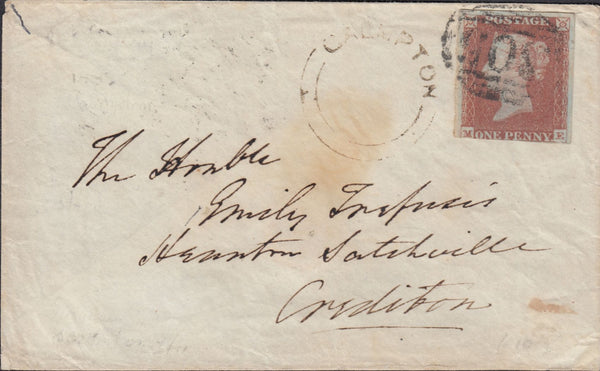 CREMPTON
POSTAGE
ONE PENNY
M E
The Honble
Emily Trefusis
Heanton Satchville
Crediton